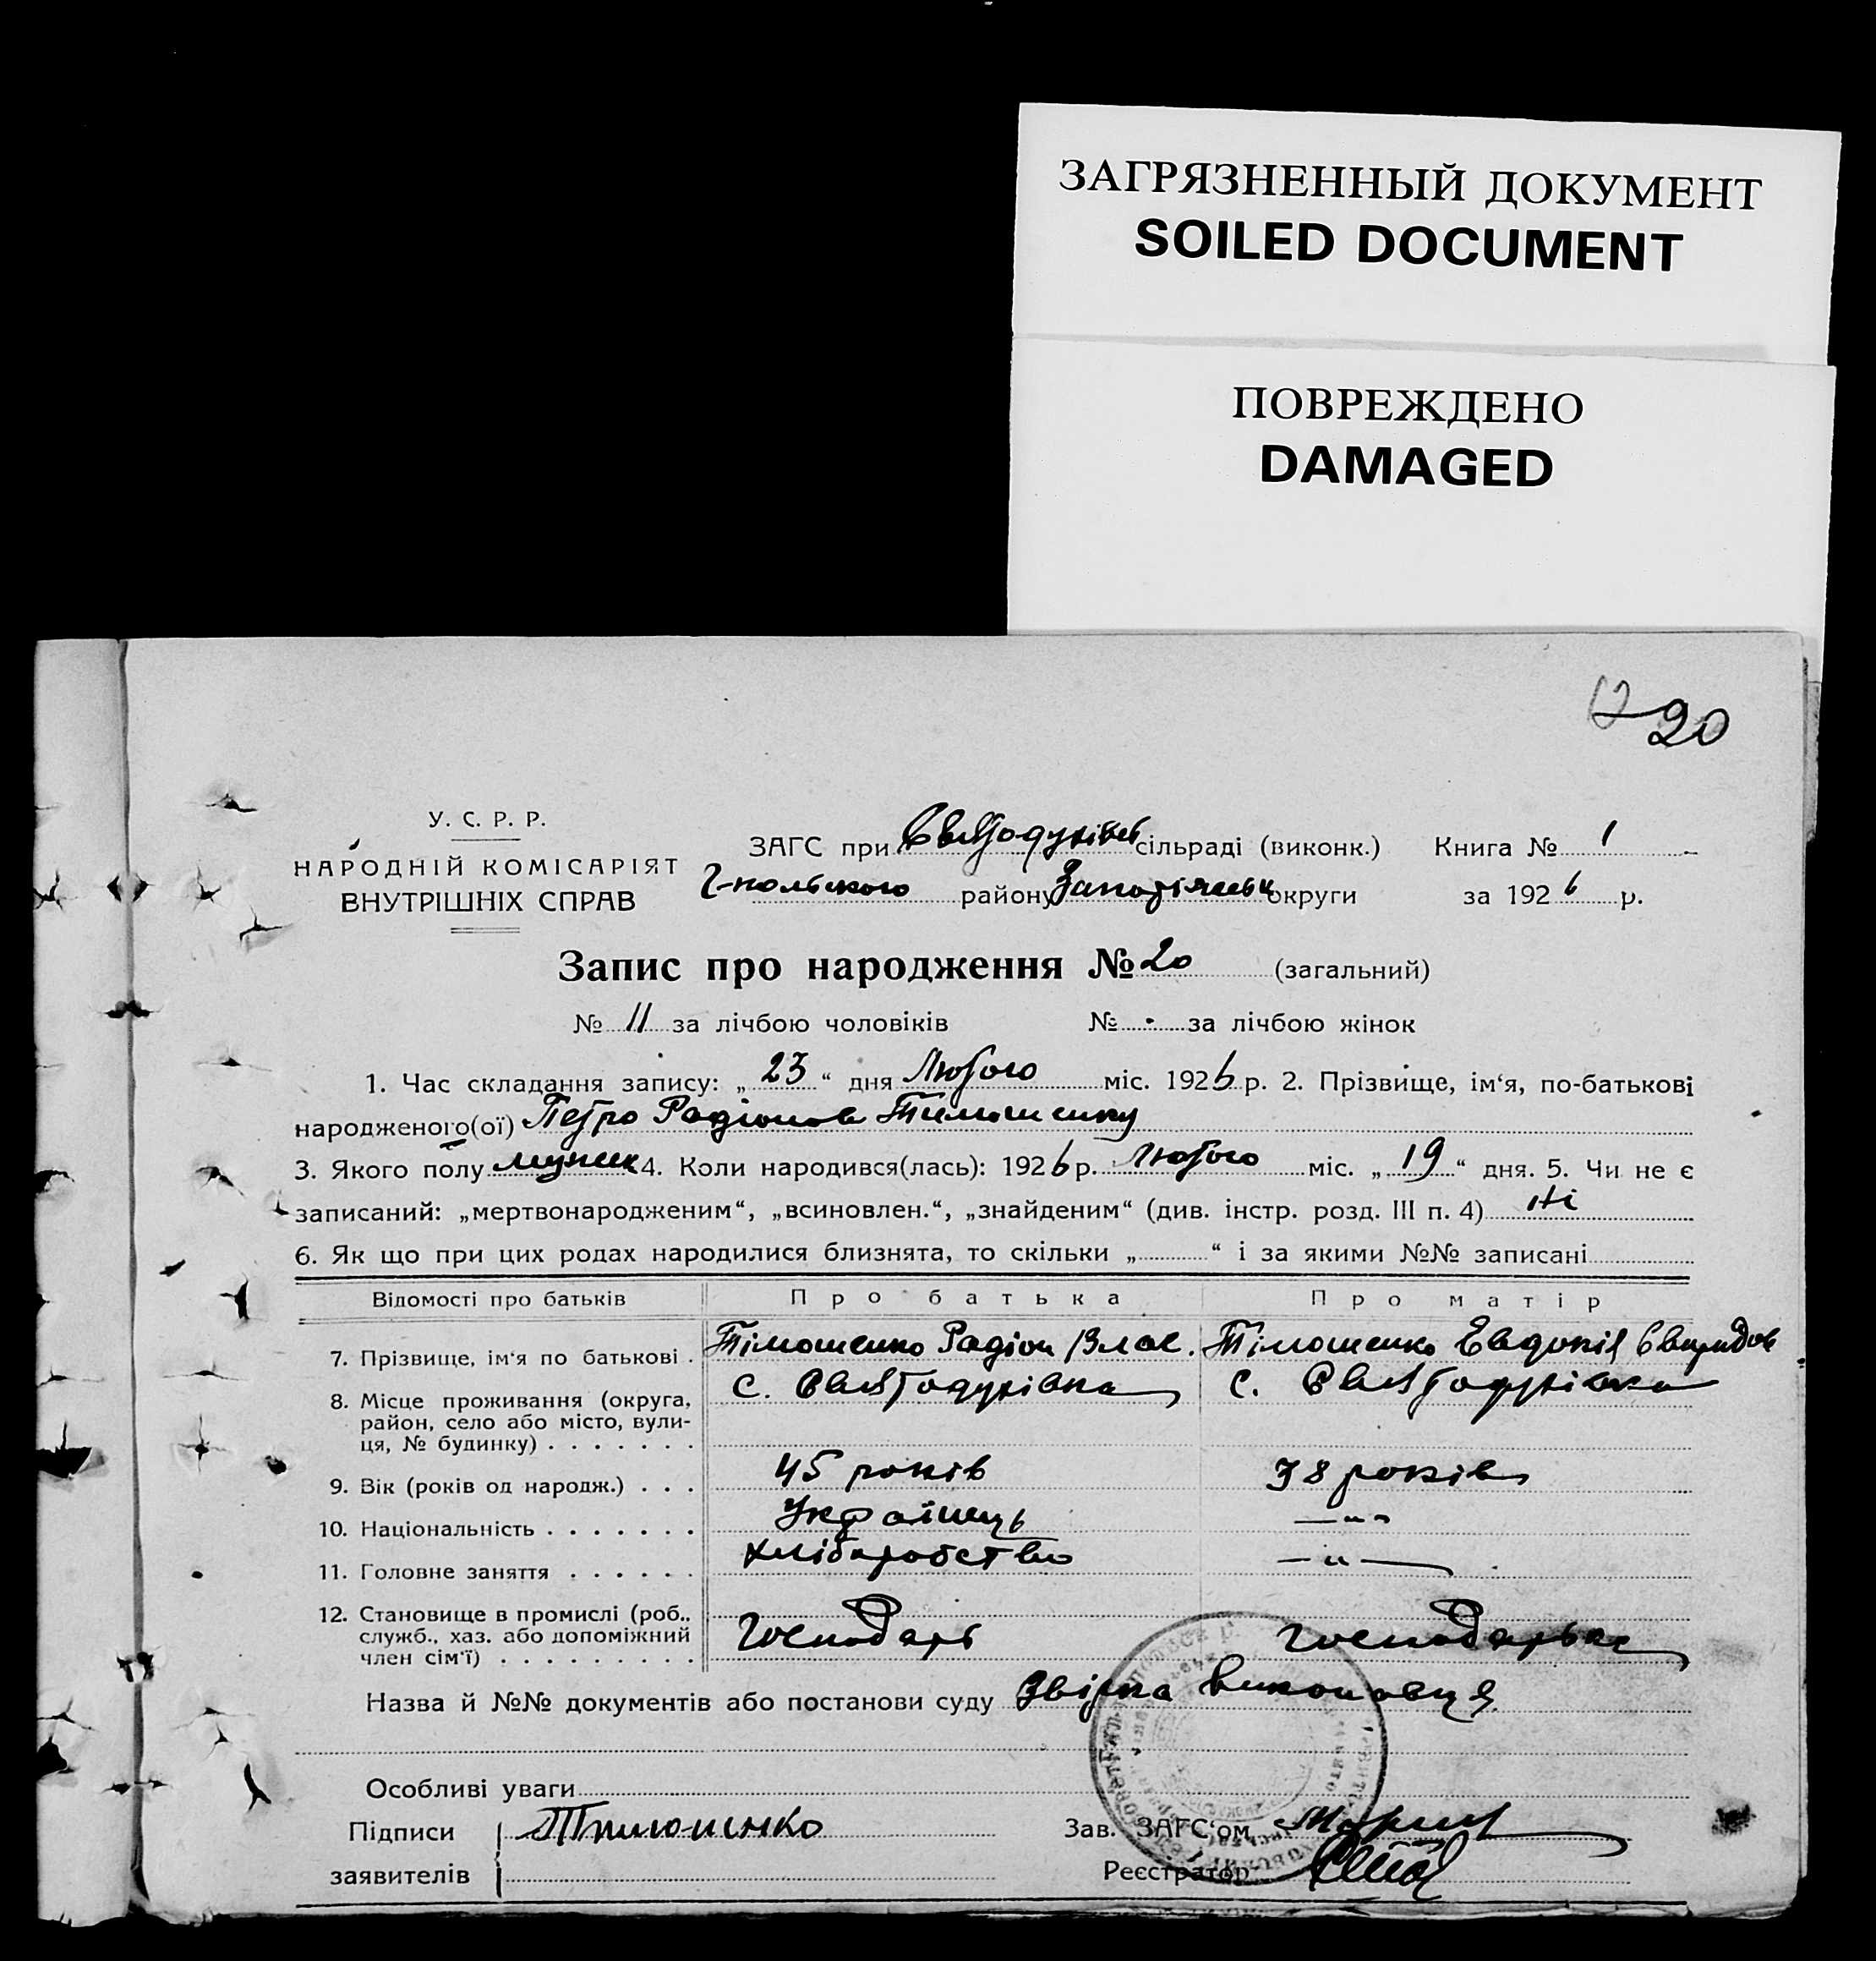 ЗАГРЯЗНЕННЫЙ ДОКУМЕНТ
SOILED DOCUMENT
ПОВРЕЖДЕНО
DAMAGED
12 20
У. С. Р. Р.
НАРОДНІЙ КОМІСАРІЯТ
ВНУТРІШНІХ СПРАВ
ЗАГС при Святодухівск сільраді (виконк.) Книга № 1
Г-польского району Запоріжськ округи за 1926 р.
Запис про народження № 20 (загальний)
№ 11 за лічбою чоловіків № - за лічбою жінок
1. Час складання запису: „ 23 “ дня Лютого міс. 1926 р. 2. Прізвище, ім‘я, по-батькові
народженого(ої) Петро Радіонов Тимошенку
3. Якого полу мужеск 4. Коли народився(лась): 1926 р. Лютого міс. „ 19 “ дня. 5. Чи не є
записаний: „мертвонародженим“, „всиновлен.“, „знайденим“ (див. інстр. розд. III п. 4) Ні
6. Як що при цих родах народилися близнята, то скільки „ “ і за якими №№ записані
Відомості про батьків Про батька Про матір
7. Прізвище, ім‘я по батькові . Тімошенко Радіон Влас. Тімошенко Евдокія Свиридов
8. Місце проживання (округа, район, село або місто, вули-ця, № будинку) . . . . . . . с. Святодухівка с. Святодухівка
9. Вік (років од народж.) . . . 45 років 38 років
10. Національність . . . . . . . Українець — „ -
11. Головне заняття . . . . . . хліборобство — „ —
12. Становище в промислі (роб., служб., хаз. або допоміжний член сім‘ї) . . . . . . . . . Господарь господарька
Назва й №№ документів або постанови суду Звірка виконовця
Особливі уваги
Підписи Тимошенко Зав. ЗАГС‘ом
заявителів Реєстратор